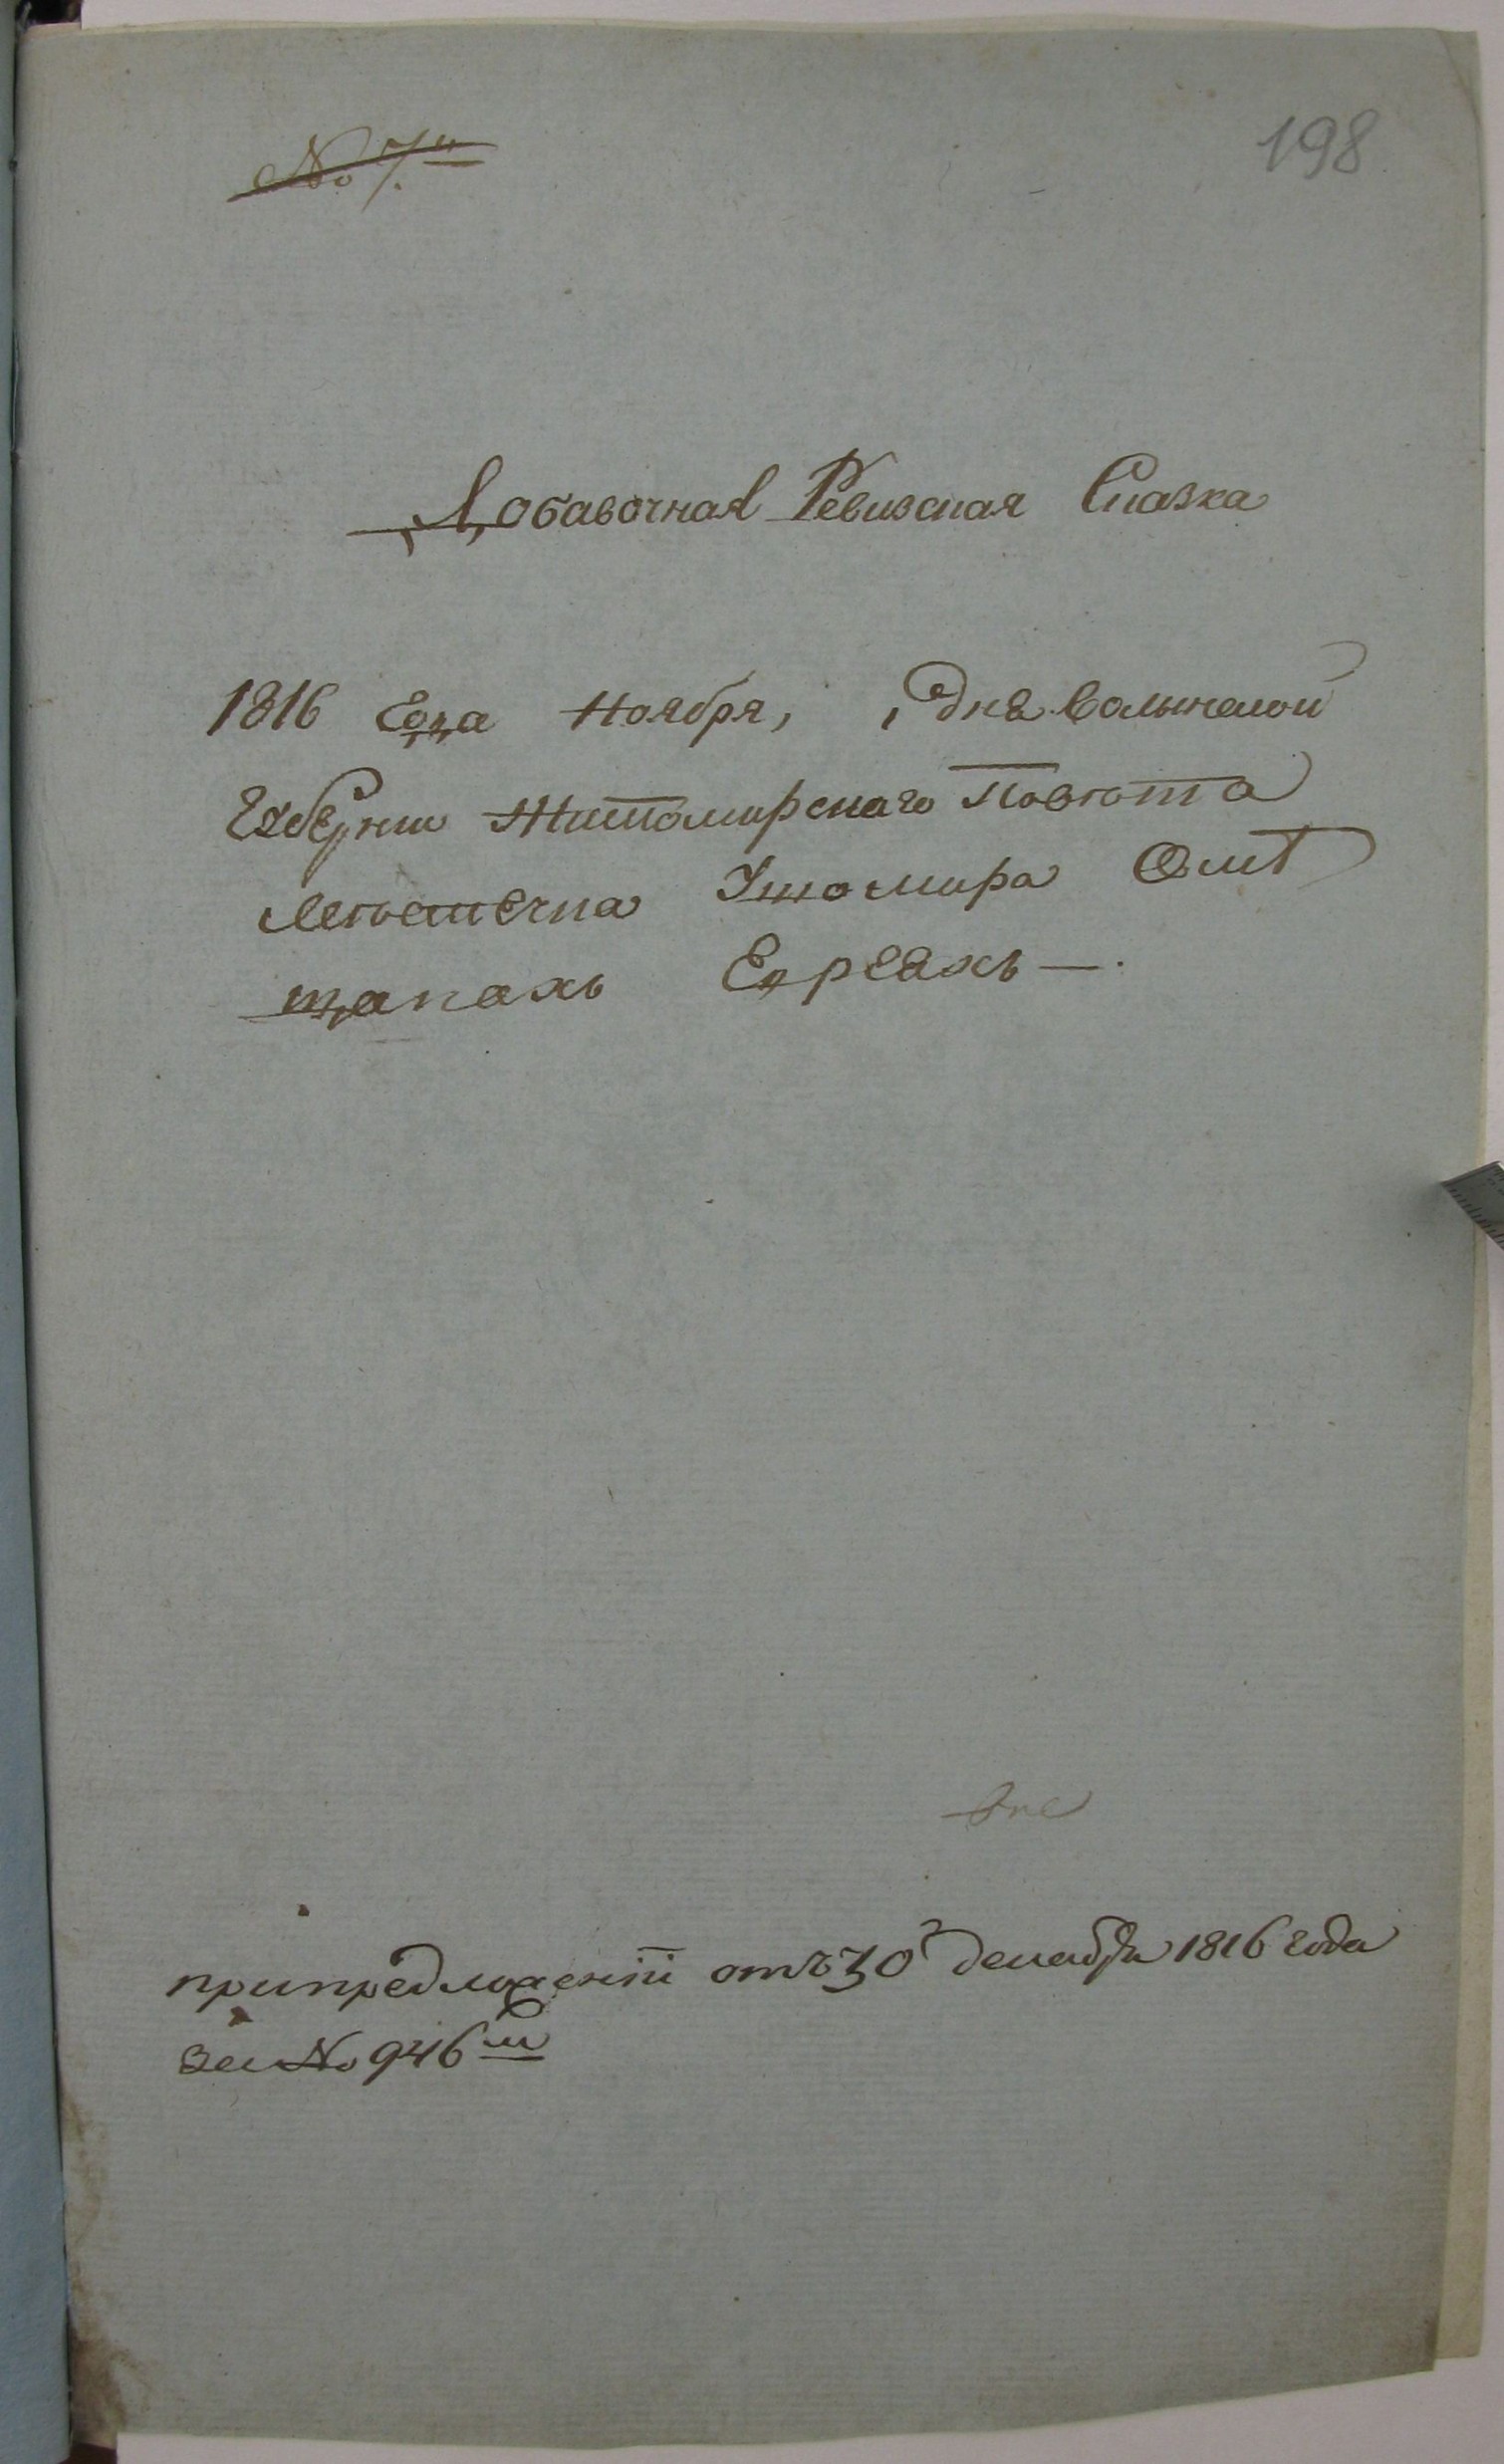 № 7й
198
Добавочная Ревизская Сказка
1816 Года Ноября, Дня Волынской
Губернии Житомирскаго Повѣта
Мѣстечка Ушомира О мѣ
щанахъ Евреяхъ —.
при предложении отъ 30 декабря 1816 года
за № 946м